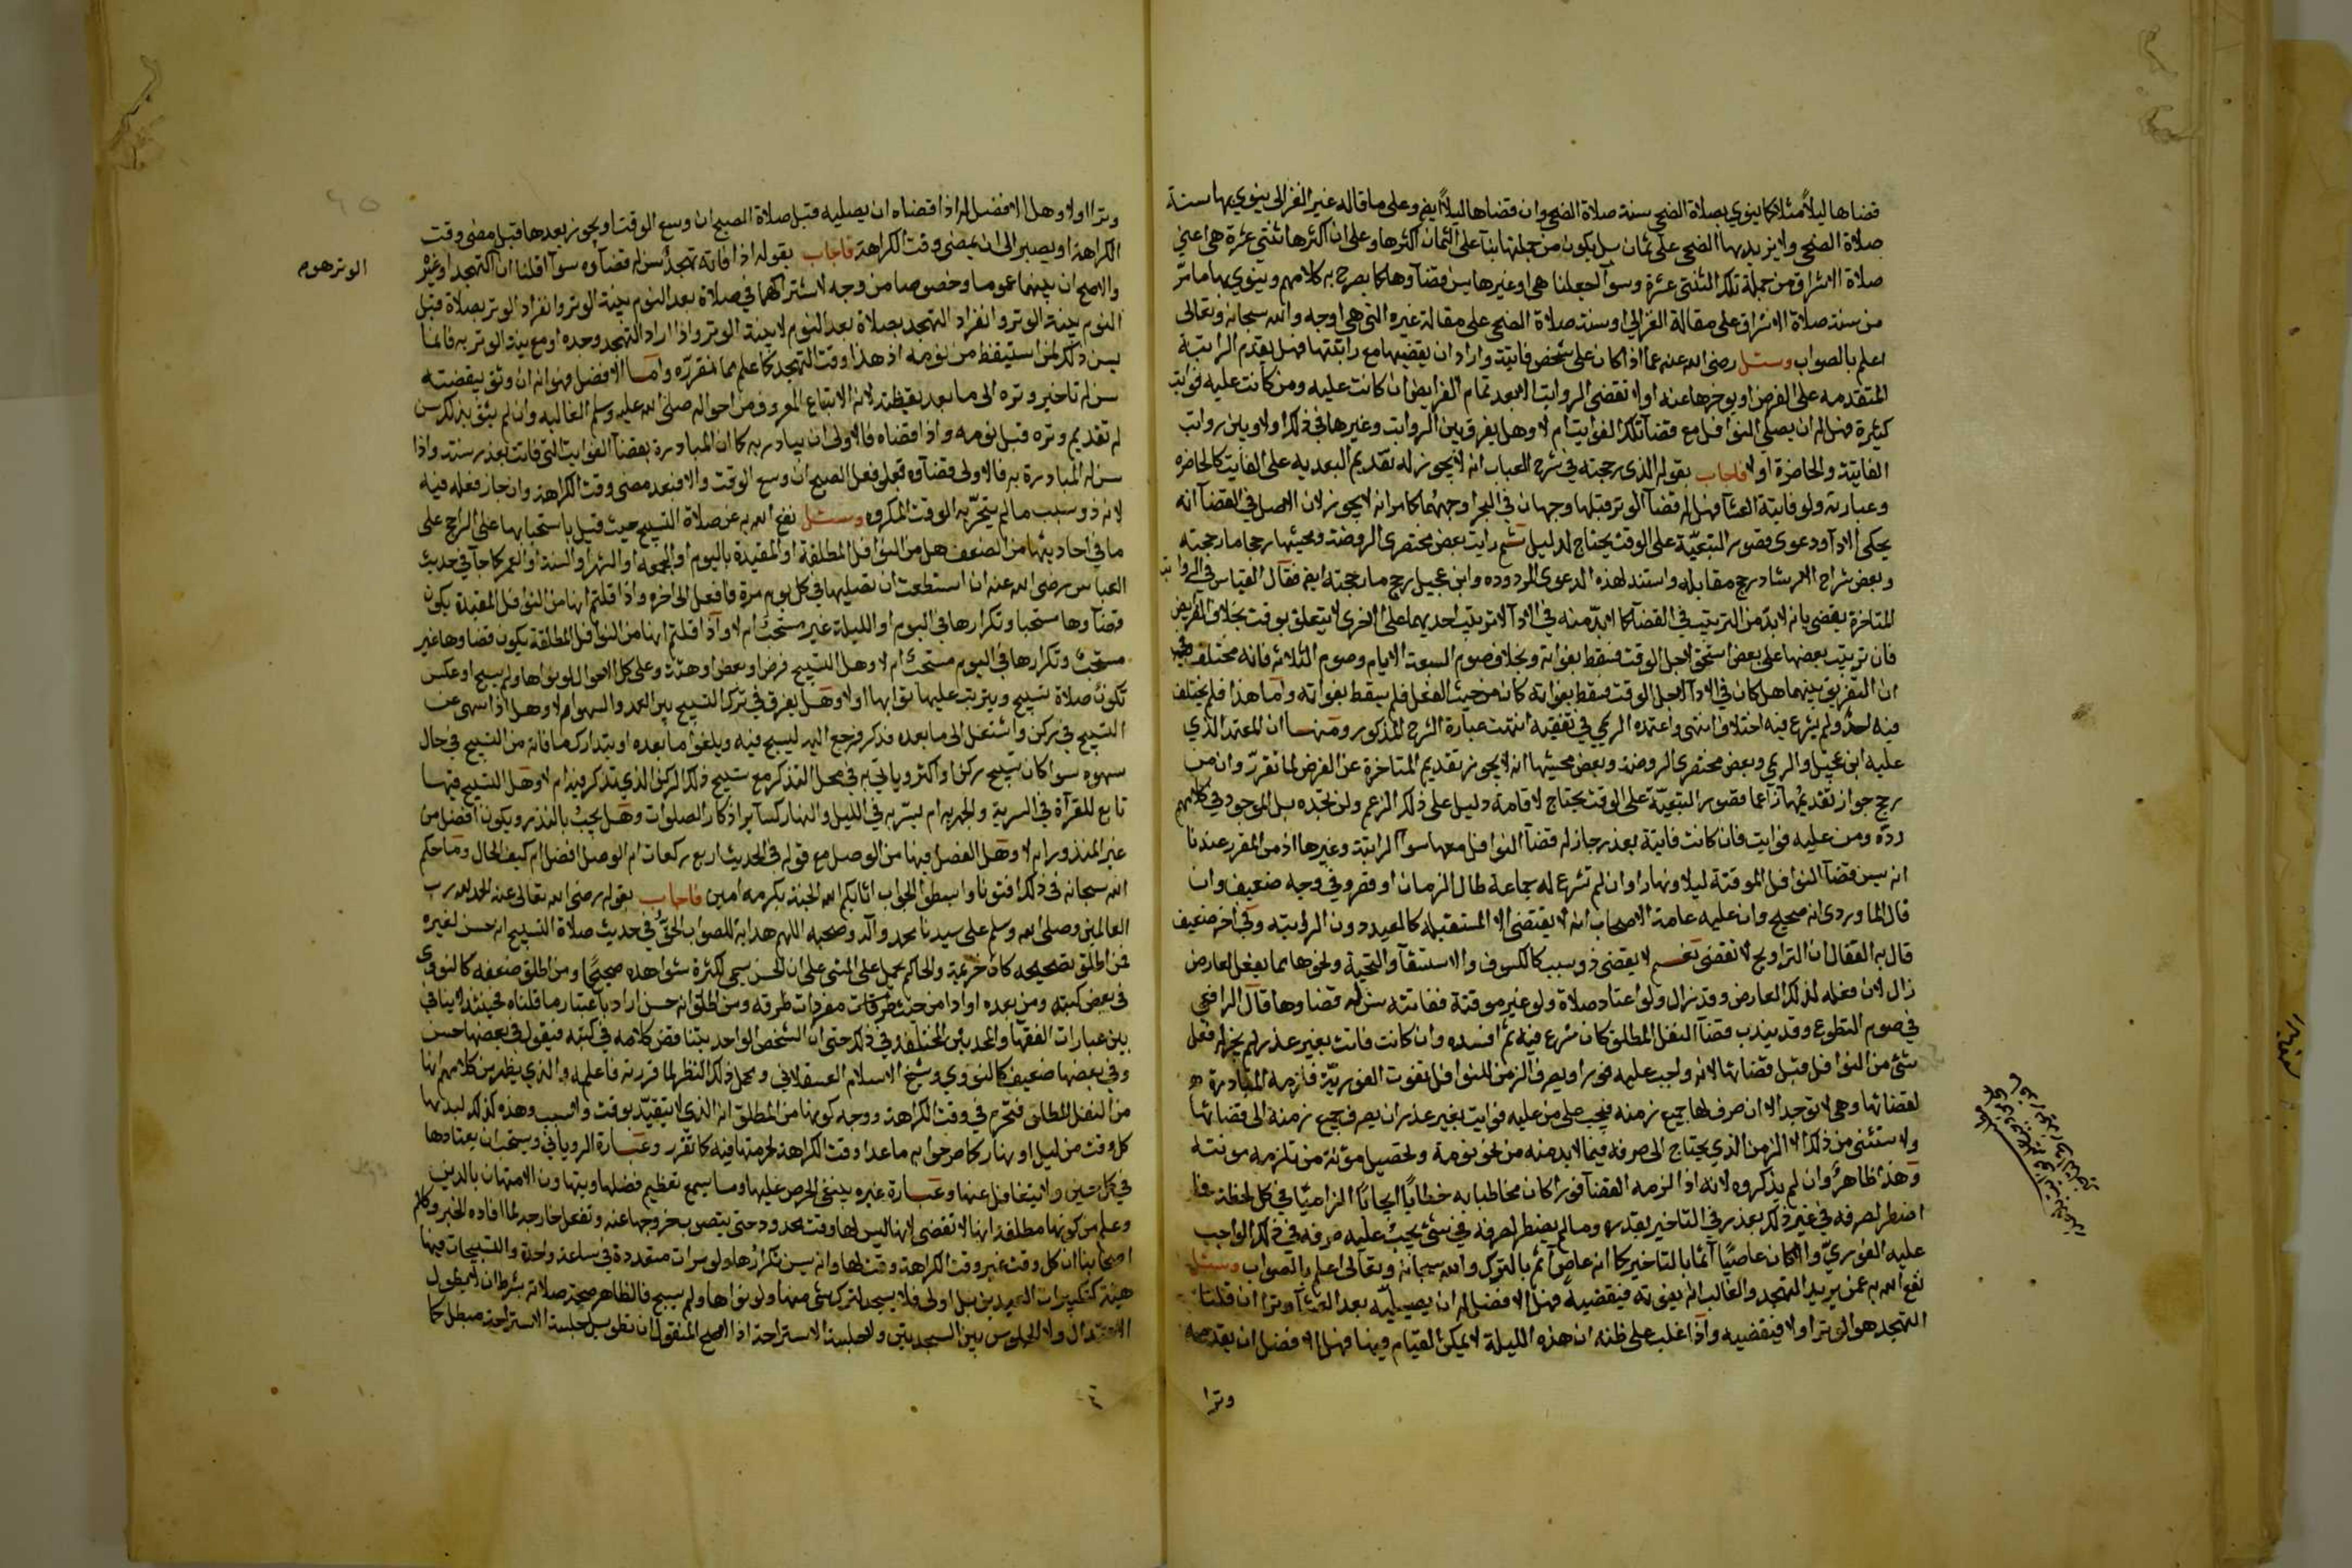 قضاها ليلاً مثلا كما ينوي بصلاة الضحى سنة صلاة الضحى وان قضاها ليلاً ايض وعلى ما قاله غير الغزالي ينوي بها سنة
صلاة الضحى ولا يزيد بها الضحى على ثمان بل يكون من جملتها بنآ على ان الثمان اكثرها وعلى ان اكثرها ثنتي عشرة هي اعني
صلاة الاشراق من جملة تلك الثنتي عشرة وسوآ اجعلنا هي او غيرها يسن قضآوها كما يصرح به كلامهم وينوي بها ما مرّ
من سنة صلاة الاشراق على مقالة الغزالي او سنة صلاة الضحى على مقالة غيره التي هي اوجه والله سبحانه وتعالى
اعلم بالصواب وسئل رضي الله عنه عما اذا كان على شخص فايتة واراد ان يقضيها مع راتبتها فهل يقدم الراتبة
المتقدمه على الفرض او يوخرها عنه او لا تقضى الرواتب الا بعد تمام الفرايض ان كانت عليه ومن كانت عليه فوايت
كثيرة هل له ان يصلي النوافل مع قضآ تلك الفوايت ام لا وهل يفرق بين الرواتب وغيرها في ذلك اولا وبين رواتب
الفايتة والحاضرة او لا فاجاب بقوله الذي رجحته في شرح العباب انه لا يجوز له تقديم البعديه على الفايت كالحاضره
وعبارته ولو فايتة العشآ فهل له قضآ الوتر قبلها وجهان في البحر اوجههما كما مر انه لا يجوز لان الاصل في القضآ انه
يحكي الادآ ودعوى قصور التبعيّة على الوقت يحتاج لدليل ثم رايت بعض مختصري الروضة ومحيشها رجحا ما رجحته
وبعض شراح الارشاد رجح مقابله واستند لهذه الدعوى المردوده وابن عجيل رجح ما رجحته ايض فقال القياس في الرواتب
المتاخرة يقضي بانه لا بدّ من الترتيب في القضآ كما لا بدّ منه في الادآ لان ترتيب احديهما على الاخرى لا يتعلق بوقت بخلاف الفرايض
فان ترتيب بعضها على بعض استحق لاجل الوقت فسقط بفواته وبخلاف صوم السبعة الايام وصوم الثلاثه فانه مختلف فيه
ان التفريق بينهما هل كان في الادآ لاجل الوقت فيسقط بفواته كان من حيث الفعل فلم يسقط بفواته واما هذا فلم يختلف
فيه احد ولم يشرع فيه اختلاف انتهى واعتمده الريمي في تفقيه انتهت عبارة الشرح المذكور ومنها ان المعتمد الذي
عليه ابن عجيل والريمي وبعض مختصري الروضة وبعض محيشيها انه لا يجوز تقديم المتاخرة عن الفرض لما تقرر وان من
رجح جواز تقديمها زاعما قصور التبعيّة على الوقت يحتاج لاقامة دليل على ذلك الزعم ولن تجده بل الموجود في كلامهم
ردّه ومن عليه فوايت فان كانت فايتة بعذر جاز له قضآ النوافل معها سوآ الراتبة وغيرها اذ من المقرر عندنا
انه يسن قضآ النوافل الموقتة ليلا ونهارا وان لم تشرع له جماعة طال الزمان او قصر وفي وجه ضعيف وان
قال الماوردي انه صحيح وان عليه عامة الاصحاب انه لا يقتضي الا المستقبله كالعيد دون الرواتب وفي اخر ضعيف
قال به القفال ان التراويح لا تقضى نعم لا يقضى ذو سبب كالكسوف والاستسقآ والتحية ونحوها مما يفعل لعارض
زال لان فعله لذلك العارض وقد زال ولو اعتاد صلاة ولو غير موقتة ففاتته سن له قضاوها قال الرافعي
في صوم التطوع وقد يندب قضآ النفل المطلق كان شرع فيه ثم افسده وان كانت فاتت بغير عذر لم يجز له فعل
شئ من النوافل قبل قضائها لانه واجب عليه فورا وبصرف الزمن للنوافل تفوت الفوريّة فلزمه المبادرة
لقضائها وهي لا توجد الا ان صرف لها جميع زمنه فيجب على من عليه فوايت بغير عذر ان يصرف جميع زمنه الى قضائها
ولا ستثنى من ذلك الا الزمن الذي يحتاج الى صرفه فيما لا بد منه من نحو نومة وتحصيل مؤنة من تلزمه مونته
وهذا ظاهر وان لم يذكروه لانه اذا لزمه القضآ فورا كان مخاطبا به خطابًا ايجابًا الزاميًا في كل لحظة فما
اضطر لصرفه في غير ذلك يعذر في التاخير بقدره وما لم يضطر لصرفه في شئ يجب عليه صرفه في ذلك الواجب
عليه الفوريّ والا كان عاصيًا آثما بالتاخير كما انه عاص آثم بالترك والله سبحانه وتعالى اعلم بالصواب وسئل
نفع الله به عمن يريد التهجد والغالب انه يفوته فيقضيه فهل الافضل له ان يصيليّه بعد العشآ وترا ان قلنا
التهجد هو الوتر اولا فيقضيه واذا غلب على ظنه ان هذه الليلة لا يمكن القيام فيها فهل الافضل ان يقدمه
وترا
وترا اولا وهل الافضل له اذا قضاه ان يصليه قبل صلاة الصبح ان وسع الوقت او يجوز بعدها قبل مضي وقت
الكراهة او يصير الى ان يمضي وقت الكراهة فاجاب بقوله اذا فاته تهجد سن له قضآوه سوآ اقلنا ان التهجد او غيره
الوتر هو م
والاصح ان بينهما عموما وخصوصا من وجه لاشتراكهما في صلاة بعد النوم بنية الوتر وانفراد الوتر بصلاة قبل
النوم بنية الوتر وانفراد التهجد بصلاة بعد النوم لا بنية الوتر واذا اراد التهجد وحده او مع نية الوتر به فانما
يسن ذلك لمن استيقظ من نومه اذ هذا وقت التهجد كما علم مما تقرره واما الافضل فهو انه ان وثق بيقضته
سن له تاخير وتره الى ما بعد يقظته لانه الاتباع المعروف من احواله صلى الله عليه وسلم الغالبه وان لم يثق بذلك سن
له تقديم وتره قبل نومه واذا قضاه فالاولى ان يبادر به كما ان المبادرة بقضآ الفوايت التي فاتت بعذر سنة واذا
سن له المبادرة به فالاولى قضآوه قبل فعل الصبح ان وسع الوقت والا فبعد مضي وقت الكراهة وان جاز فعله فيه
لانه ذو سبب ما لم يتحرّ به الوقت المكروه وسئل نفع الله به عن صلاة التسبيح حيث قيل باستحبابها على الراجح على
ما في احاديثها من الضعف هل من النوافل المطلقة او المقيدة باليوم او الجمعه او الشهر او السنة او العمر كما جآ في حديث
العباس رضي الله عنه ان استطعت ان تصليها في كل يوم مرة فافعل الى اخره واذا قلتم انها من النوافل المقيدة يكون
قضآوها مستحبا وتكرارها في اليوم او الليلة غير مستحب ام لا وآذا قلتم انها من النوافل المطلقة يكون قضاوها غير
مستحب وتكرارها في اليوم مستحب ام لا وهل التسبيح فرض او بعض او هيئة وعلى كل الاحوال لو نواها ولم يسبح او عكس
تكون صلاة تسبيح ويترتب عليها ثوابها اولا وهل يفرق في ترك التسبيح بين العمد والسهو ام لا وهل اذا سهى عن
التسبيح في ركن واشتغل الى ما بعده فذكر فرجع اليه ليسبح فيه ويلغو ما بعده او يتدارك ما فاته من التسبيح في حال
سهوه سوا كان تسبيح ركن او اكثر وياتي به في محل التذكر مع تسبيح ذلك الركن الذي تذكر فيه ام لا وهل التسبيح فيها
تابع للقرآة في السرية والجهريه ام يسرّ به في الليل والنهار كسآير اذكار الصلوات وهل يجب بالنذر ويكون افضل من
غير المنذور ام لا وهل الفصل فيها من الوصل مع قوله في الحديث اربع ركعات ام الوصل افضل ام كيف الحال وما حكم
الله سبحانه في ذلك افتونا وابسطوا الجواب اثابكم الله الجنة بكرمه امين فاجاب بقوله رضي الله تعالى عنه الحمد لله رب
العالمين وصلى الله وسلم على سيدنا محمد وآله وصحبه اللهم هداية للصواب الحق في حديث صلاة التسبيح انه حسن لغيره
فمن اطلق تصحيحه كابن خزيمة والحاكم يحمل على المشي على ان الحسن يسمى لكثرة شواهده صحيحًا ومن اطلق ضعفه كالنووي
في بعض كتبه ومن بعده اراد من حيث مفردات طرقه ومن اطلق انه حسن اراد باعتبار ما قلناه فحينئذ لا ينافي
بين عبارات الفقهآ والمحدثين المختلفة في ذلك حتى ان الشخص الواحد يتناقض كلامه في كتبه فيقول في بعضها حسن
وفي بعضها ضعيف كالنووي وشيخ الاسلام العسقلاني ومحل ذلك النظر لما قررته فاعلمه والذي يظهر من كلامهم انها
من النفل المطلق فتحرم في وقت الكراهة ووجه كونها من المطلق انه الذي لا يتقيّد بوقت ولا سبب وهذه كذلك لندبها
كل وقت من ليل او نهار كما صرحوا به ما عدا وقت الكراهة لحرمتها فيه كما تقرر وعبارة الروياني ويستحب ان يعتادها
في كل حين ولا يتغافل عنها وعبارة غيره ينبغي الحرص عليها وما يسمع تعظيم فضلها ويتهاون الا متهان بالدين
وعلم من كونها مطلقة انها لا تقضى لانها ليس لها وقت محدود حتى يتصور خروجها عنه وتفعل خارجه لما افاده الخبر وكلام
اصحابنا ان كل وقت غير وقت الكراهة وقت لها وانه يسن تكرارها ولو مرات متعددة في ساعة واحدة والتسبيحات فيها
هيئة كتكبيرات العيدين بل اولى فلا يسجد لترك شئ منها ولو نواها ولم يسبح فالظاهر صحة صلاته بشرط ان لا يطول
الاعتدال ولا الجلوس بين السجدتين ولا جلسة الاستراحة اذ الاصح المنقول ان تطويل جلسة الاستراحة مبطل كما